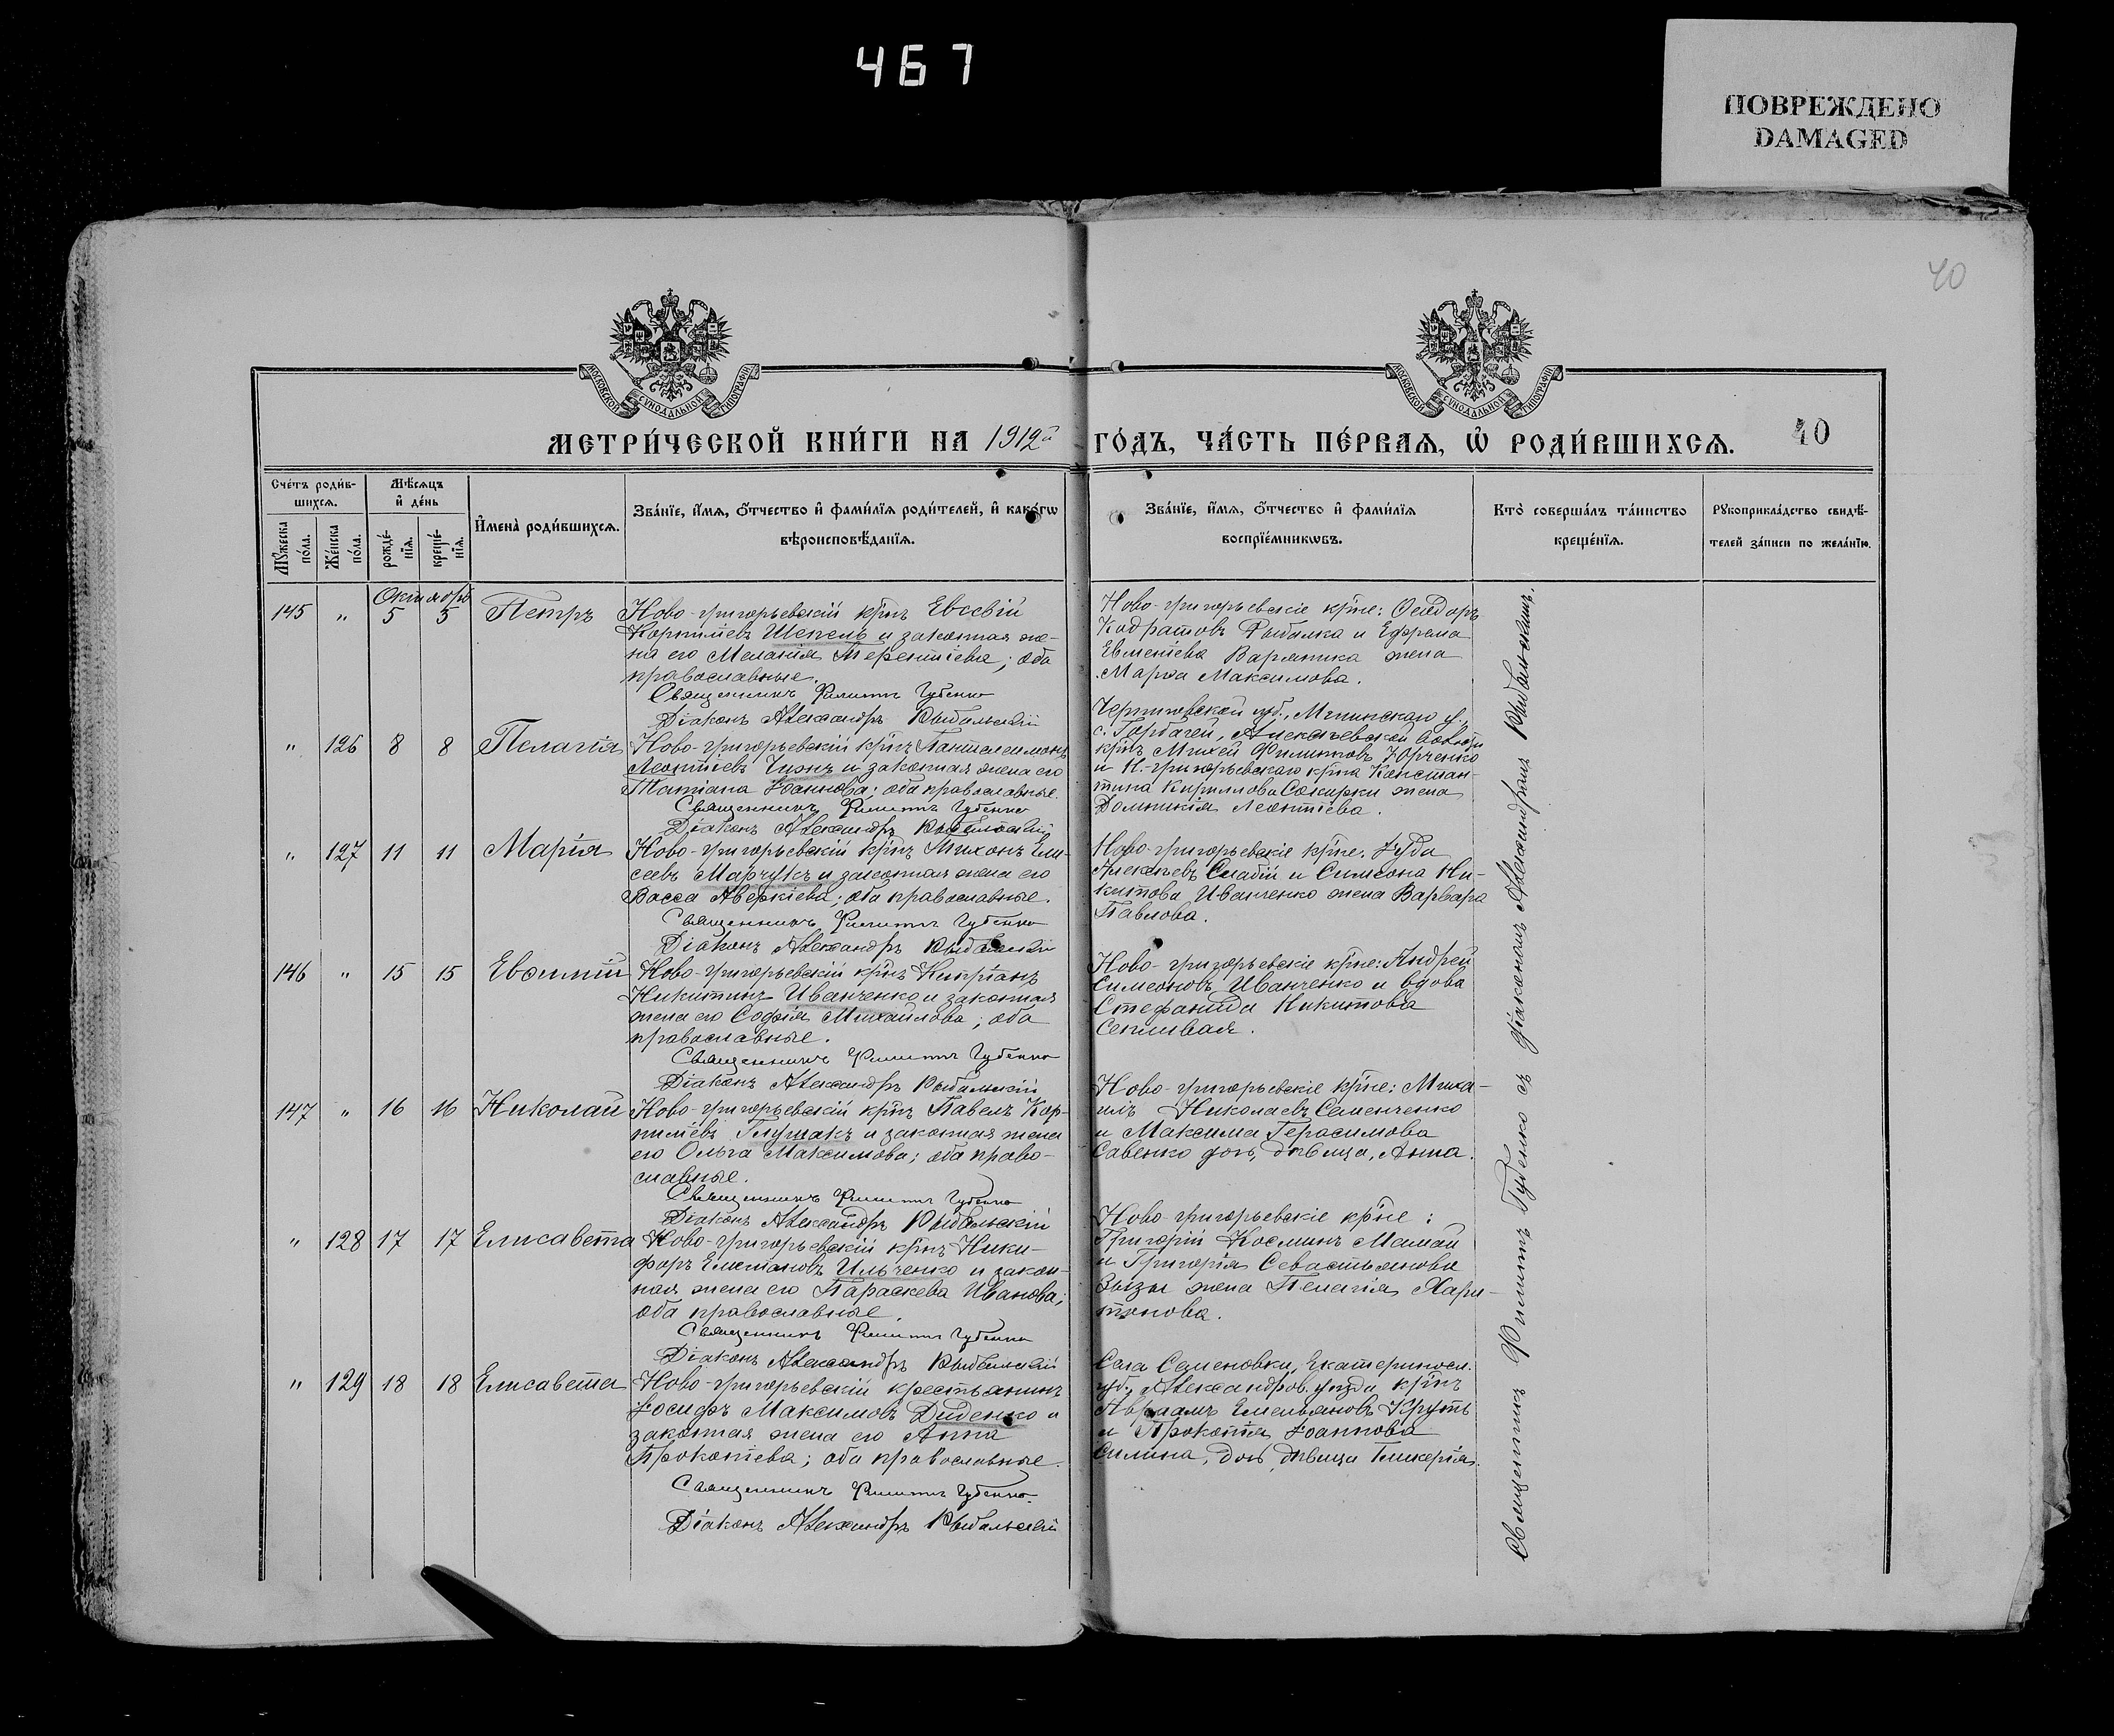 467
ПОВРЕЖДЕНО
DAMAGED
40
МОСКОВСКОЙ СѴНОДАЛЬНОЙ ТИПОГРАФІИ
МОСКОВСКОЙ СѴНОДАЛЬНОЙ ТИПОГРАФІИ
МЕТРИ́ЧЕСКОЙ КНИ́ГИ НА 1912й ГО́ДЪ, ЧА́СТЬ ПЕ́РВАЯ, Ѡ РОДИ́ВШИХСЯ. 40
Сче́тъ роди́в-
шихся.
Мѣ́сяцъ
и҆ де́нь
Мꙋ́жеска
по́ла.
Же́нска
по́ла.
рожде́-
нїя.
креще́-
нїя.
И҆мена̀ роди́вшихся.
Зва́нїе, и҆́мя, ѻ҆́тчество и҆ фами́лїя роди́телей, и҆ како́гѡ
вѣроисповѣ́данїя.
Зва́нїе, и҆́мя, ѻ҆́тчество и҆ фами́лїя
воспрїе́мникѡвъ.
Кто̀ соверша́лъ та́инство
креще́нїя.
Рꙋкоприкла́дство свидѣ́-
телей за́писи по жела́нїю.
Октябрь
145 " 5 5 Петръ
Ново-григорьевскій кр҃нъ Евсевій
Корниліевъ Шепель и законная же-
на его Меланія Терентіева; оба
православные.
Священникъ Филиппъ Губенко
Діаконъ Александръ Рыбальскій
Ново-григорьевскіе кр҃не: Ѳеодоръ
Кодратовъ Рыбалка и Ефрема
Евменіева Варяника жена
Марѳа Максимова.
" 126 8 8 Пелагія
Ново-григорьевскій кр҃нъ Пантелеимонъ
Леонтіевъ Чижъ и законная жена его
Татіана Іоаннова; оба православные.
Священникъ Филиппъ Губенко
Діаконъ Александръ Рыбальскій
Черниговской губ., Мглинскаго у.,
с. Горбачей, Алексѣевской волости
кр҃нъ Михей Филипповъ Юрченко
и Н.-григорьевскаго кр҃на Констан-
тина Кириллова Сокирки жена
Домникія Леонтіева.
" 127 11 11 Марія
Ново-григорьевскій кр҃нъ Тихонъ Ели-
сеевъ Марчукъ и законная жена его
Васса Аверкіева; оба православные.
Священникъ Филиппъ Губенко
Діаконъ Александръ Рыбальскій
Ново-григорьевскіе кр҃не: Іуда
Алексѣевъ Слабій и Симеона Ни-
китова Иванченко жена Варвара
Павлова.
146 " 15 15 Евѳимій
Ново-григорьевскій кр҃нъ Кипріанъ
Никитинъ Иванченко и законная
жена его Софія Михайлова; оба
православные.
Священникъ Филиппъ Губенко
Діаконъ Александръ Рыбальскій
Ново-григорьевскіе кр҃не: Андрей
Симеоновъ Иванченко и вдова
Стефанида Никитова
147 " 16 16 Николай
Ново-григорьевскій кр҃нъ Павелъ Кор-
ниліевъ Глушакъ и законная жена
его Ольга Максимова; оба право-
славные.
Священникъ Филиппъ Губенко
Діаконъ Александръ Рыбальскій
Ново-григорьевскіе кр҃не: Миха-
илъ Николаевъ Семенченко
и Максима Герасимова
Савенко дочь, дѣвица, Анна.
" 128 17 17 Елисавета
Ново-григорьевскій кр҃нъ Ники-
форъ Ильченко и закон-
ная жена его Параскева Иванова;
оба православные.
Священникъ Филиппъ Губенко
Діаконъ Александръ Рыбальскій
Ново-григорьевскіе кр҃не:
Григорій Косминъ Мамай
и Григорія Севастьянова
Зызы жена Пелагія Хари-
тонова.
" 129 18 18 Елисавета
Ново-григорьевскій крестьянинъ
Іосифъ Максимовъ Диденко и
законная жена его Анна
Прокопіева; оба православные.
Священникъ Филиппъ Губенко.
Діаконъ Александръ Рыбальскій
Села Семеновки, Екатериносл.
губ., Александров. уѣзда кр҃нъ
Авраамъ Емельяновъ Круть
и Прокопія Іоаннова
Силина, дочь, дѣвица Гликерія.
Священникъ Филиппъ Губенко съ діакономъ Александромъ Рыбальскимъ.